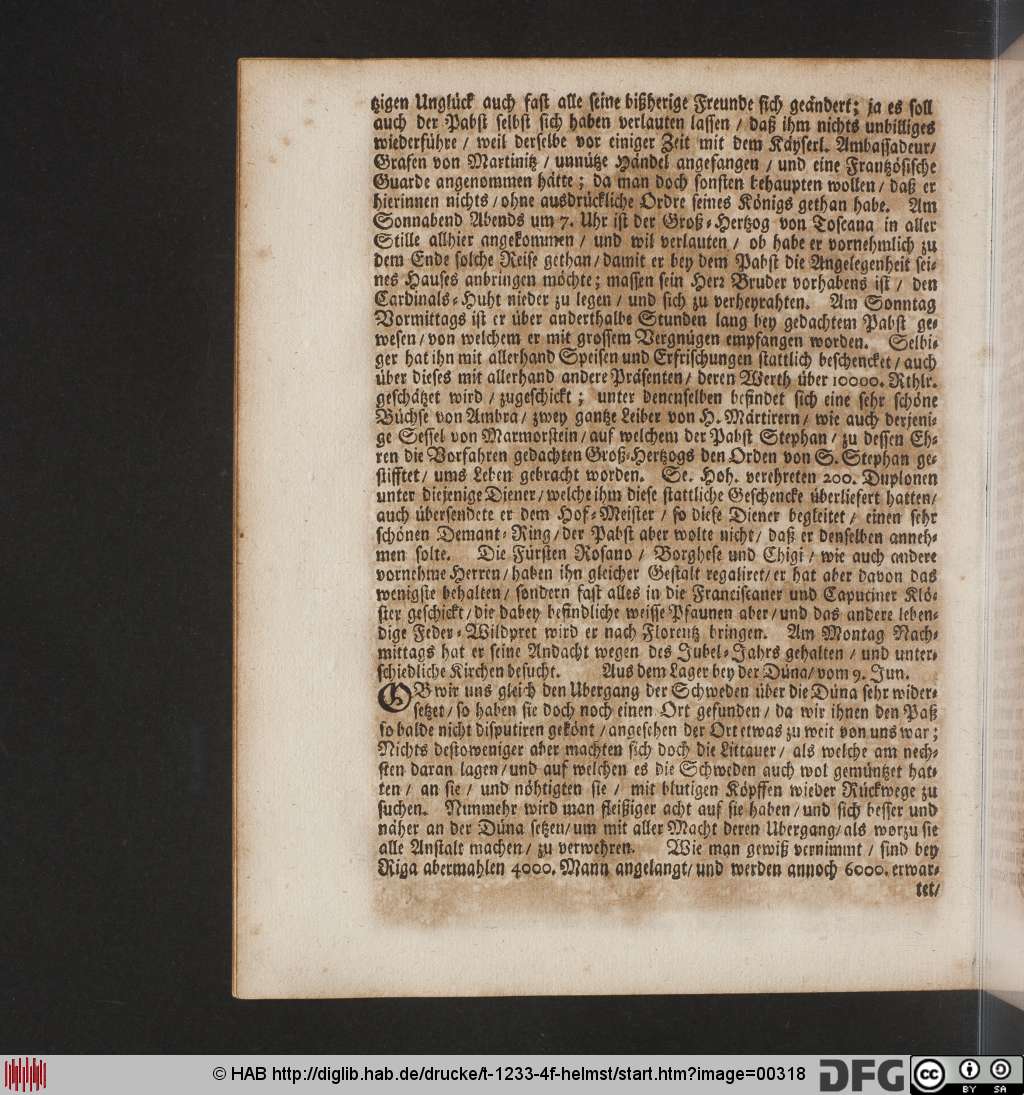 tzigen Unglück auch fast alle seine bißherige Freunde sich geändert; ja es soll
auch der Pabst selbst sich haben verlauten lassen / daß ihm nichts unbilliges
wiederführe / weil derselbe vor einiger Zeit mit dem Käyserl. Ambassadeur/
Grafen von Martinitz / unnütze Händel angefangen / und eine Frantzösische
Guarde angenommen hätte; da man doch sonsten behaupten wollen / daß er
hierinnen nichts / ohne ausdrückliche Ordre seines Königs gethan habe. Am
Sonnabend Abends um 7. Uhr ist der Groß-Hertzog von Toscana in aller
Stille allhier angekommen / und wil verlauten / ob habe er vornehmlich zu
dem Ende solche Reise gethan / damit er bey dem Pabst die Angelegenheit sei-
nes Hauses anbringen möchte; massen sein Herr Bruder vorhabens ist / den
Cardinals-Huht nieder zu legen / und sich zu verheyrahten. Am Sonntag
Vormittags ist er über anderthalbe Stunden lang bey gedachtem Pabst ge-
wesen / von welchem er mit grossem Vergnügen empfangen worden. Selbi-
ger hat ihn mit allerhand Speisen und Erfrischungen stattlich beschencket / auch
über dieses mit allerhand andere Präsenten / deren Werth über 10000. Rthlr.
geschätzet wird / zugeschickt; unter denenselben befindet sich eine sehr schöne
Büchse von Ambra / zwey gantze Leiber von H. Märtirern / wie auch derjeni-
ge Sessel von Marmorstein / auf welchem der Pabst Stephan / zu dessen Eh-
ren die Vorfahren gedachten Groß-Hertzogs den Orden von S. Stephan ge-
stifftet / ums Leben gebracht worden. Se. Hoh. verehreten 200. Duplonen
unter diejenige Diener / welche ihm diese stattliche Geschencke überliefert hatten/
auch übersendete er dem Hof-Meister / so diese Diener begleitet / einen sehr
schönen Demant-Ring / der Pabst aber wolte nicht / daß er denselben anneh-
men solte. Die Fürsten Rosano / Borghese und Chigi / wie auch andere
vornehme Herren / haben ihn gleicher Gestalt regaliret / er hat aber davon das
wenigste behalten / sondern fast alles in die Franciscaner und Capuciner Klö-
ster geschickt / die dabey befindliche weisse Pfaunen aber / und das andere leben-
dige Feder-Wildpret wird er nach Florentz bringen. Am Montag Nach-
mittags hat er seine Andacht wegen des Jubel-Jahrs gehalten / und unter-
schiedliche Kirchen besucht. Aus dem Lager bey der Düna / vom 9. Jun.
OB wir uns gleich den Ubergang der Schweden über die Düna sehr wider-
setzet / so haben sie doch noch einen Ort gefunden / da wir ihnen den Paß
so balde nicht disputiren gekönt / angesehen der Ort etwas zu weit von uns war;
Nichts destoweniger aber machten sich doch die Littauer / als welche am nech-
sten daran lagen / und auf welchen es die Schweden auch wol gemüntzet hat-
ten / an sie / und nöhtigten sie / mit blutigen Köpffen wieder Rückwege zu
suchen. Nunmehr wird man fleißiger acht auf sie haben / und sich besser und
näher an der Düna setzen / um mit aller Macht deren Ubergang / als worzu sie
alle Anstalt machen / zu verwehren. Wie man gewiß vernimmt / sind bey
Riga abermahlen 4000. Mann angelangt / und werden annoch 6000. erwar-
tet/
© HAB http://diglib.hab.de/drucke/t-1233-4f-helmst/start.htm?image=00318
DFG
cc
BY SA